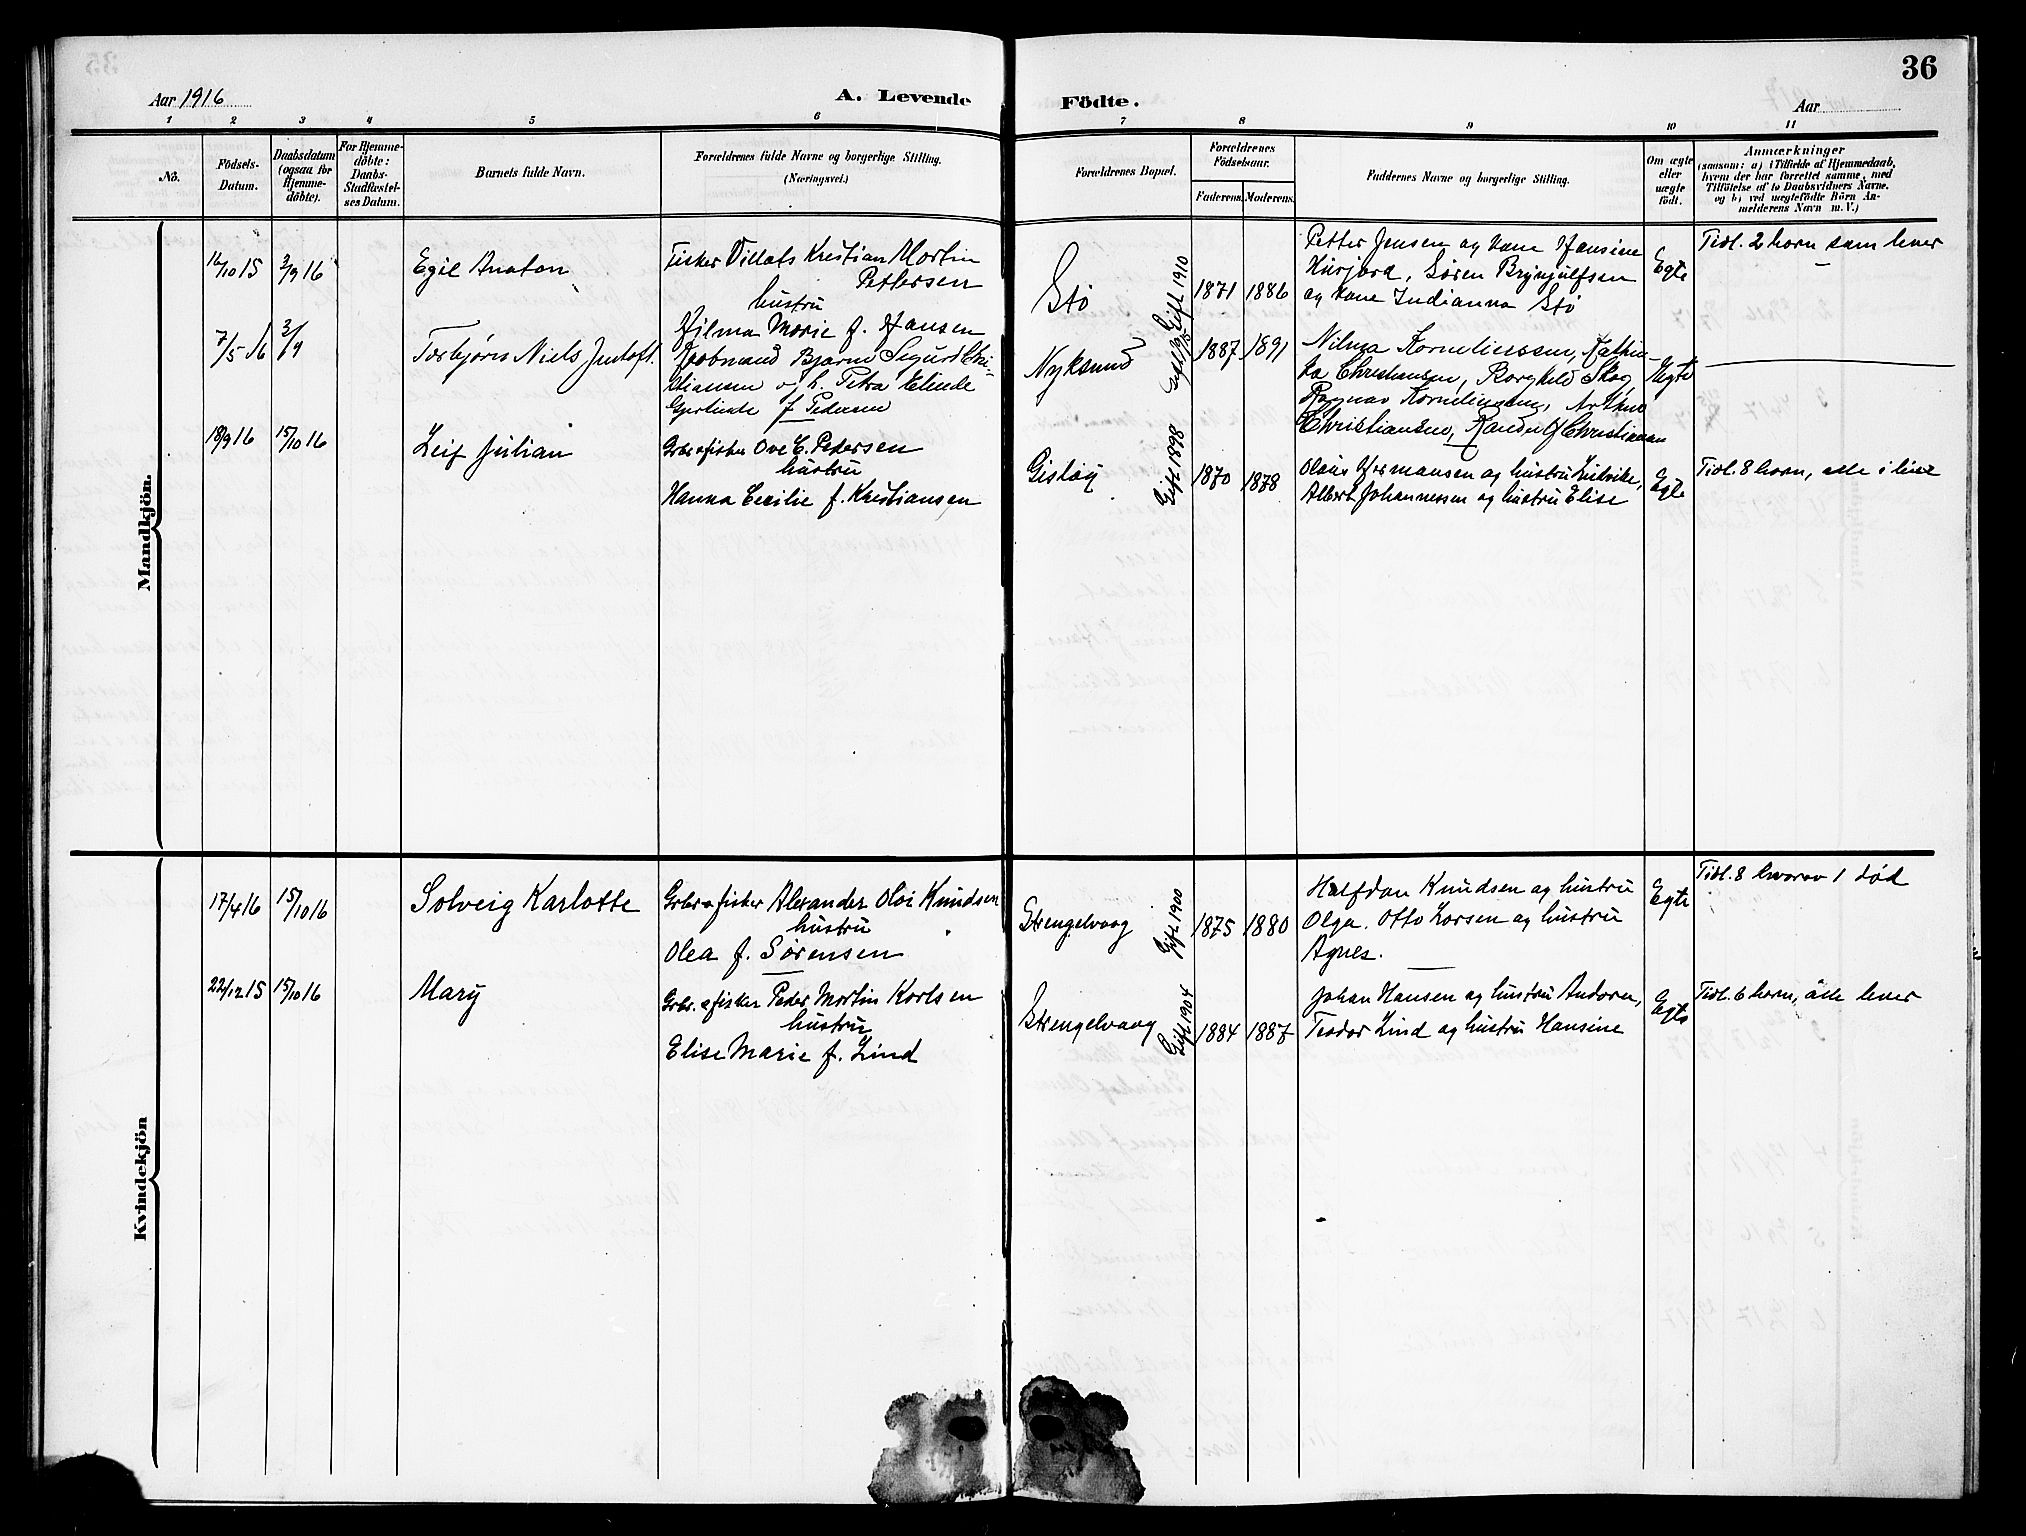 36
Aar 1916
A. Levende
Födte.
Aar
1 2 3 4 5 6 7 8 9 10 11
No.
Födsels-
Datum.
Daabsdatum
(ogsaa for
Hjemme-
döbte).
For Hjemme-
döbte:
Daabs-
Stadfæstel-
ses Datum.
Barnets fulde Navn.
Forældrenes fulde Navne og borgerlige Stilling.
(Næringsvei.)
Forældrenes Bopæl.
Forældrenes
Födselsaar.
Faderens.
Moderens.
Faddernes Navne og borgerlige Stilling.
Om ægte
eller
uægte
födt.
Anmærkninger
(saasom: a) i Tilfælde af Hjemmedaab,
hvem der har forrettet samme, med
Tilföielse af to Daabsvidners Navne.
og b) ved uægtefödte Börn An-
melderens Navn m.V.)
Mandkjön.
16/10 15
3/9 16
Egil Anaton
Fisker Villats Kristian Martin
Pettersen
hustru
Hilma Marie f. Hansen
Stø
Gift 1910
1871
1886
Petter Jensen og kone Hansine
Hurjord, Søren Brynjulfsen
og kone Indianna Stø
Egte
Tidl. 2 barn som lever
7/5 16
3/9
Torbjørn Niels Justoft.
Kjøbmand Bjarne Sigurd Chri-
stiansen og h. Petra Elinde
Gjertine f Pedersen
Nyksund
Gift 1915
1887
1891
Nilma Korneliussen, Kathin-
ka Christiansen, Borghild Skog,
Ragnar Korneliussen, Arthur
Christiansen, Randulf Christiansen
Ægte
18/9 16
15/10 16
Leif Julian
Grbr. o fisker Ove C. Pedersen
hustru
Hanna Cecilie f. Kristiansen
Gisløy
Gift 1898
1870
1878
Olaus Hermansen og hustru Lutvike,
Albert Johannessen og hustru Elise
Egte
Tidl. 8 barn, alle i live
Kvindekjön
17/4 16
15/10 16
Solveig Karlotte
Grbr. o fisker Alexander Oloi Knudsen
hustru
Olea f. Sørensen
Strengelvaag
Gift 1900
1875
1880
Halfdan Knudsen og hustru
Olga. Otto Larsen og hustru
Agnes.
Egte
Tidl. 8 hvorav 1 død
22/12 15
15/10 16
Mary
Grbr. o fisker Peder Martin Karlsen
hustru
Elise Marie f. Lind
Strengelvaag
Gift 1904
1884
1887
Johan Hansen og hustru Andora,
Teodor Lind og hustru Hansine
Egte
Tidl. 6 barn, alle lever